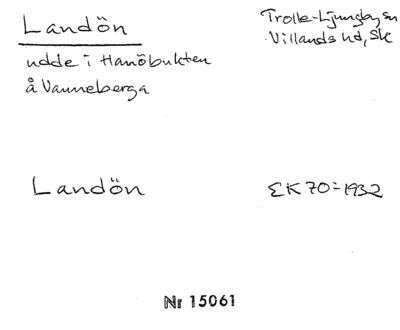 Landön
Trolle-Ljungby sn
Villands hd, Sk
udde i Hanöbukten
å Vanneberga
Landön
EK 70 = 1932
Nr 15061